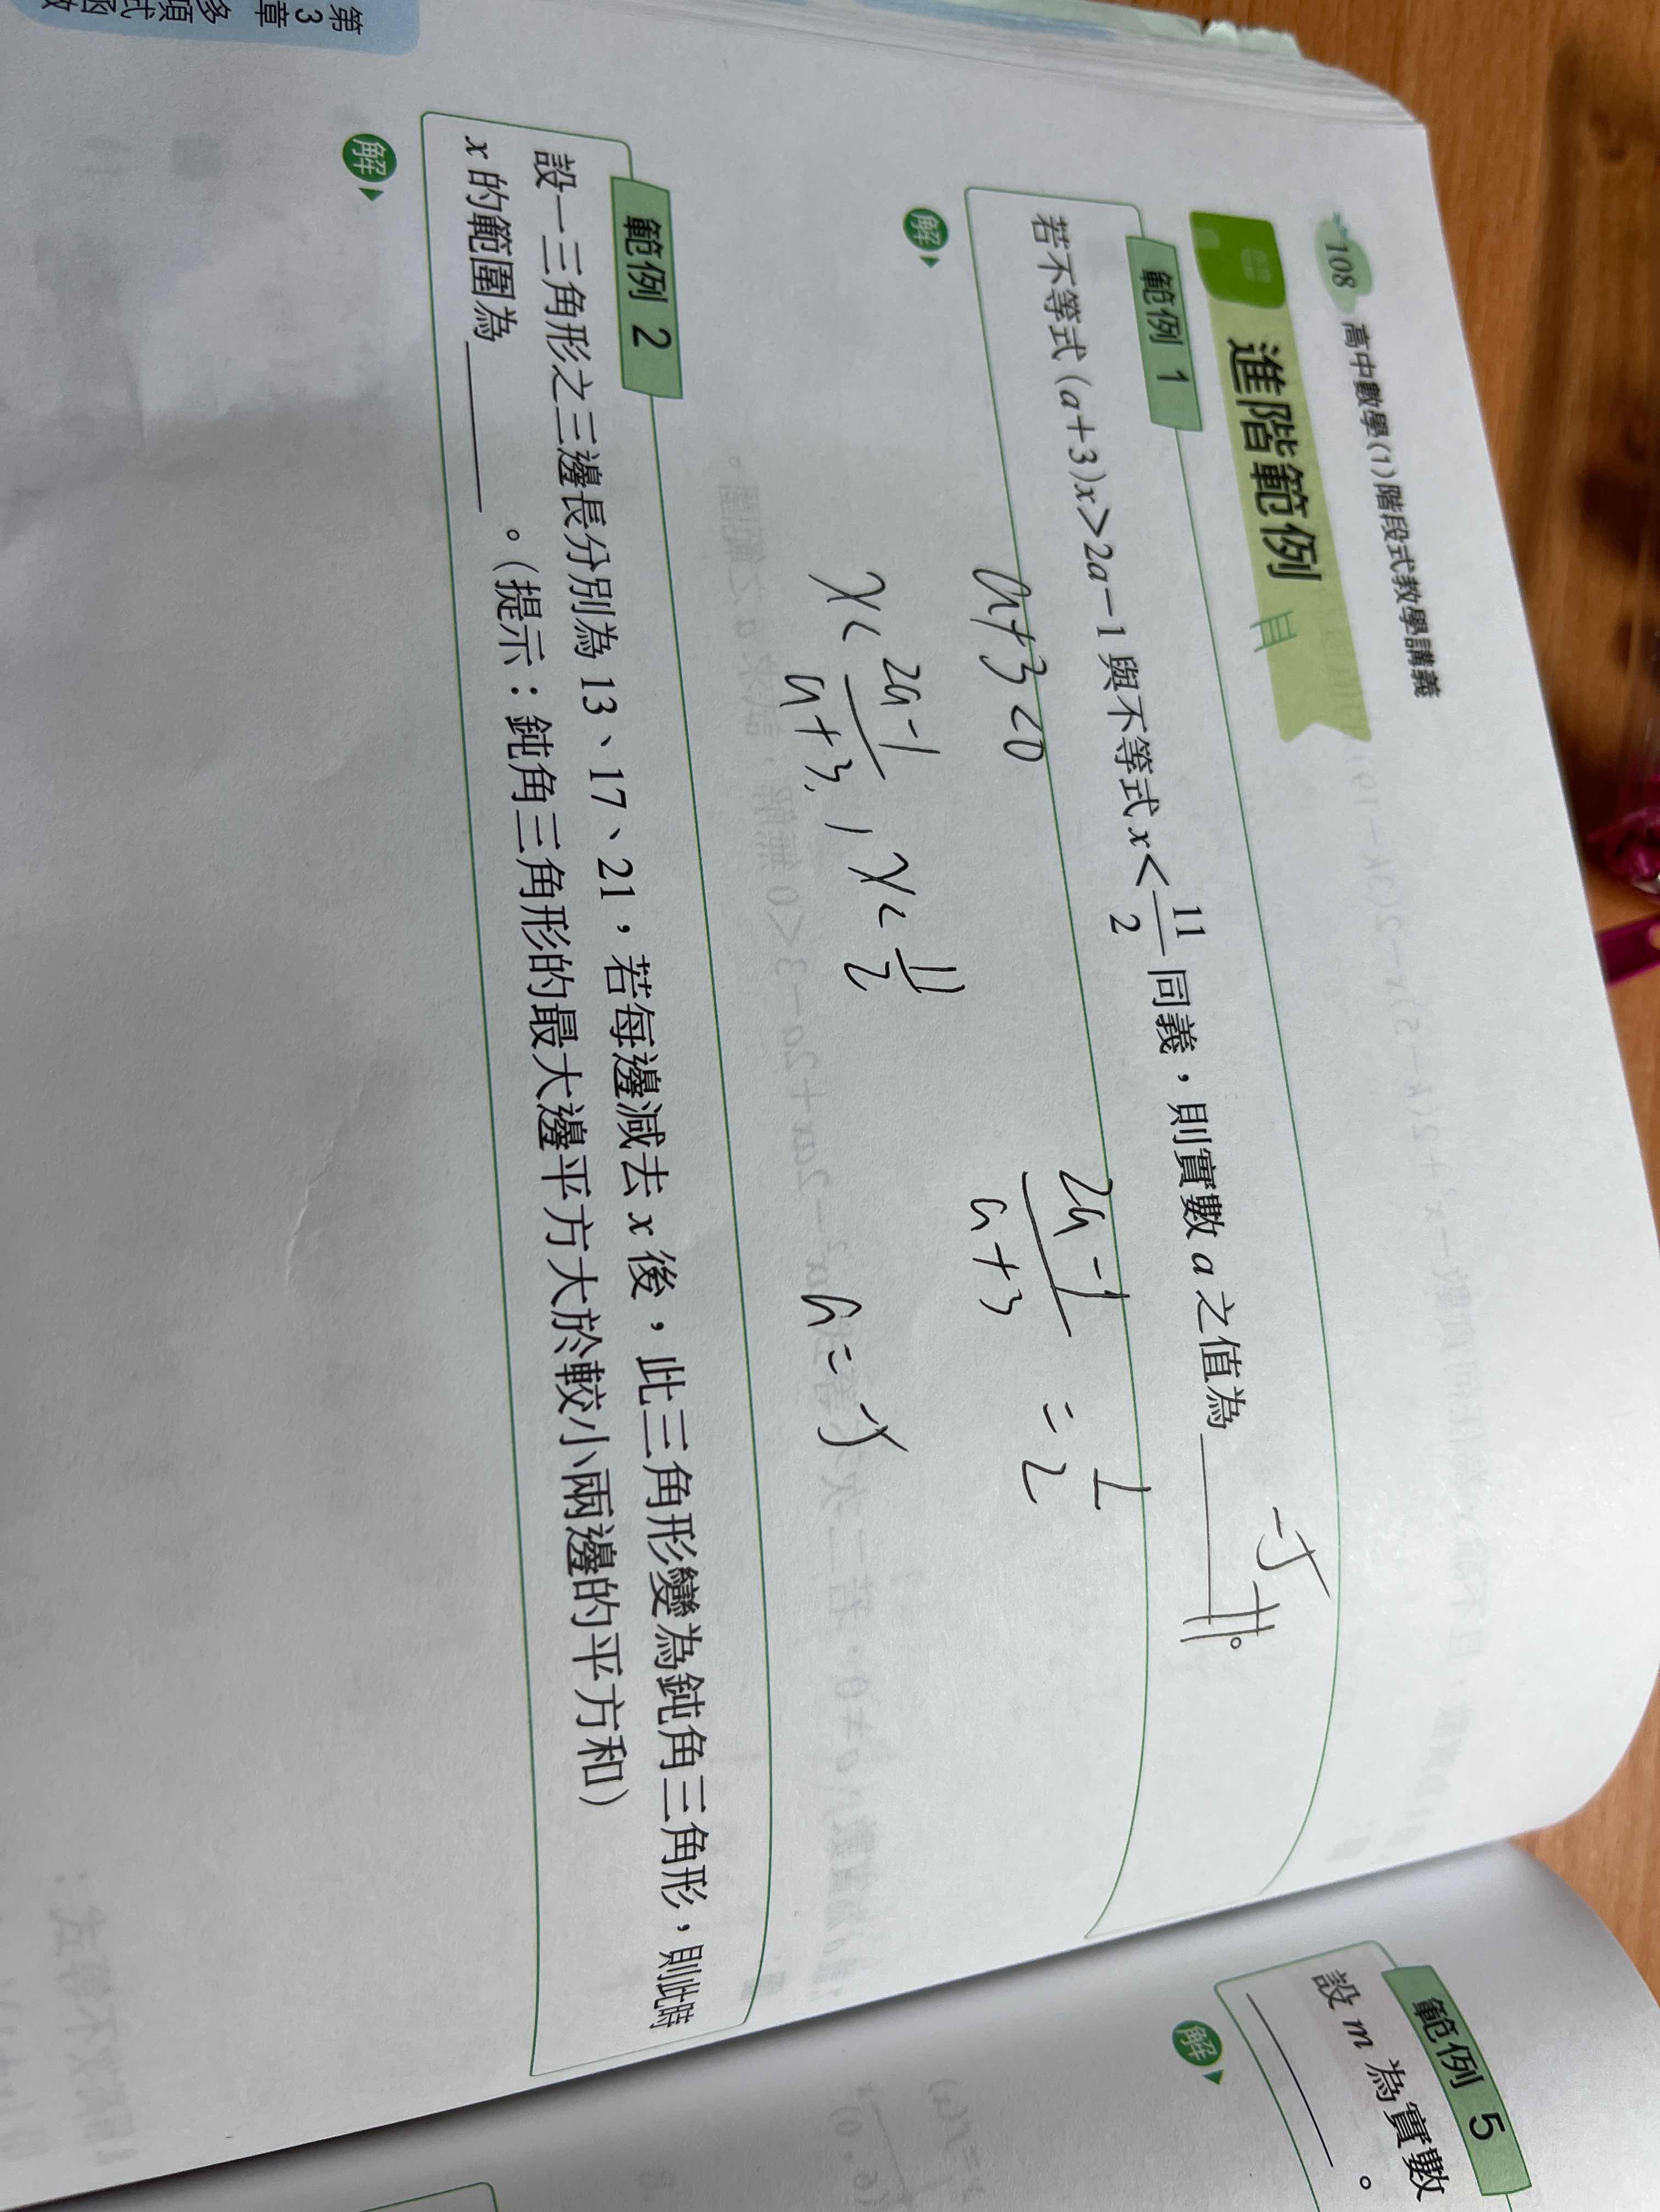 108 高中數學(1)階段式教學講義
進階範例
範例 1
若不等式(a+3)x>2a-1與不等式x<11/2同義，則實數a之值為______。
-5
解
a+3<0
x<(2a-1)/(a+3), x<11/2
(2a-1)/(a+3)=
a=-5
範例 2
設一三角形之三邊長分別為13、17、21，若每邊減去x後，此三角形變為鈍角三角形，則此時
x的範圍為______。(提示：鈍角三角形的最大邊平方大於較小兩邊的平方和)
解
第3章
範例 5
設m為實數
______。
解